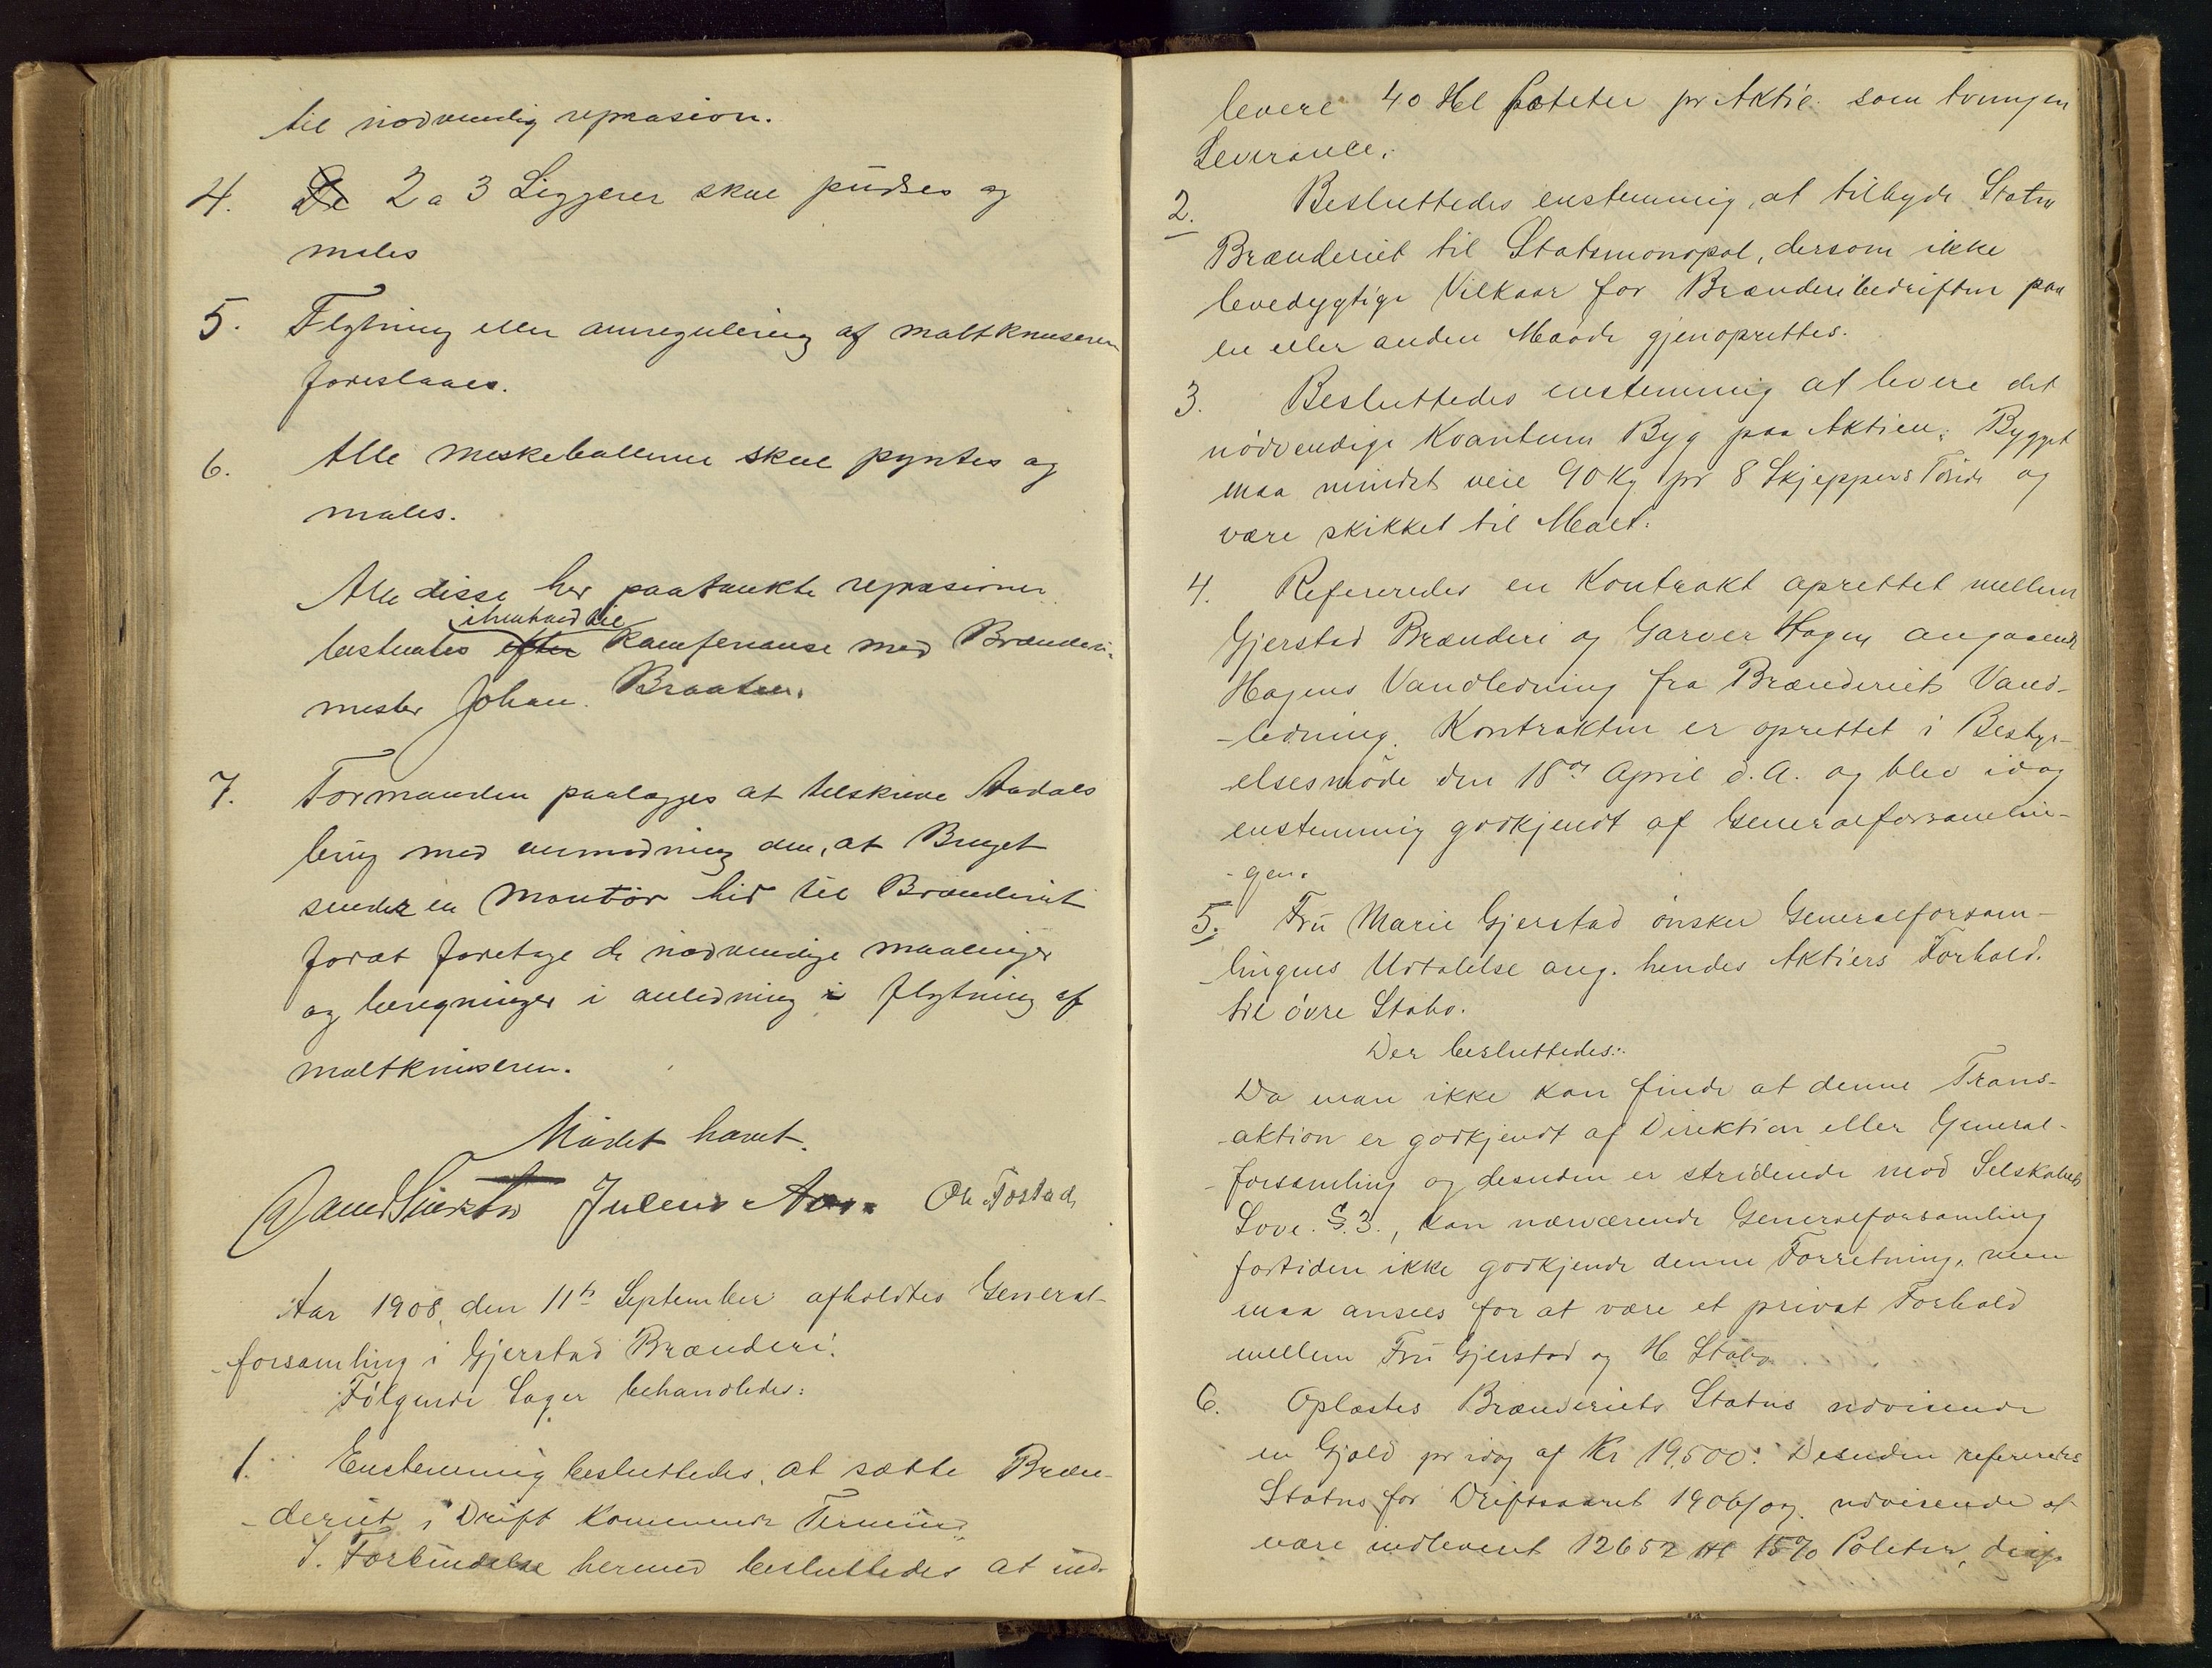 til nødvendig reprasion.
4. De 2 a 3 Liggerer skal pudses og
males
5. Flytning eller omregulering af maltknuseren
foreslaaes.
6. Alle meskeballerne skal pyntes og
males.
Alle disse her paatænkte reprasioner
i henhold til
besluttes efter Konferanse med Brænderi-
mester Johan Braaten.
7. Formanden paalægges at tilskrive Aadals
brug med anmodning om, at Bruget
sender en Montør hid til Brænderiet
forat foretage de nødvendige maalinger
og beregninger i anledning i flytning af
maltknuseren.
Mødet hævet.
Julius Ole Fostad
Aar 1908, den 11te September afholdtes General-
-forsamling i Gjerstad Brænderi.
Følgende Sager behandledes:
1. Enstemmig besluttedes, at sætte Bræn-
-deriet i Drift kommende Termin.
I Forbindelse hermed besluttedes at ind-
levere 40 Hl Poteter pr Aktie som tvungen
Leverance.
2. Besluttedes enstemmig, at tilbyde Staten
Brænderiet til Statsmonopol, dersom ikke
levedygtige Vilkaar for Brænderibedriften paa
en eller anden Maade gjenoprettes.
3. Besluttedes enstemmig at levere det
nødvendige Kvantum Byg paa Aktien. Bygget
maa mindst veie 90 Kg pr 8 Skjeppers Tønde og
være skikket til Malt.
4. Refereredes en Kontrakt oprettet mellem
Gjerstad Brænderi og Garver Hagen angaaende
Hagens Vandledning fra Brænderiets Vand-
-ledning. Kontrakten er oprettet i Besty-
-elsesmøde den 18de April d.A. og blev idag
enstemmig godkjendt af Generalforsamlin-
-gen.
5. Fru Marie Gjerstad ønsker Generalforsam-
-lingens Udtalelse ang. hendes Aktiers Forhold
til øvre Stabo.
Der besluttedes:
Da man ikke kan finde at denne Trans-
-aktion er godkjendt af Direktion eller General-
-forsamling og desuden er stridende mod Selskabets
Love §.3., kan nærværende Generalforsamling
fortiden ikke godkjende denne Forretning, men
maa ansees for at være et privat Forhold
mellem Fru Gjerstad og H. Stabo.
6. Oplæstes Brænderiets Status udvisende
en Gjæld pr idag af Kr 19,500. Desuden refereredes
Status for Driftsaaret 1906/07 udvisende at
være indleveret 12652 Hl 15% Poteter,